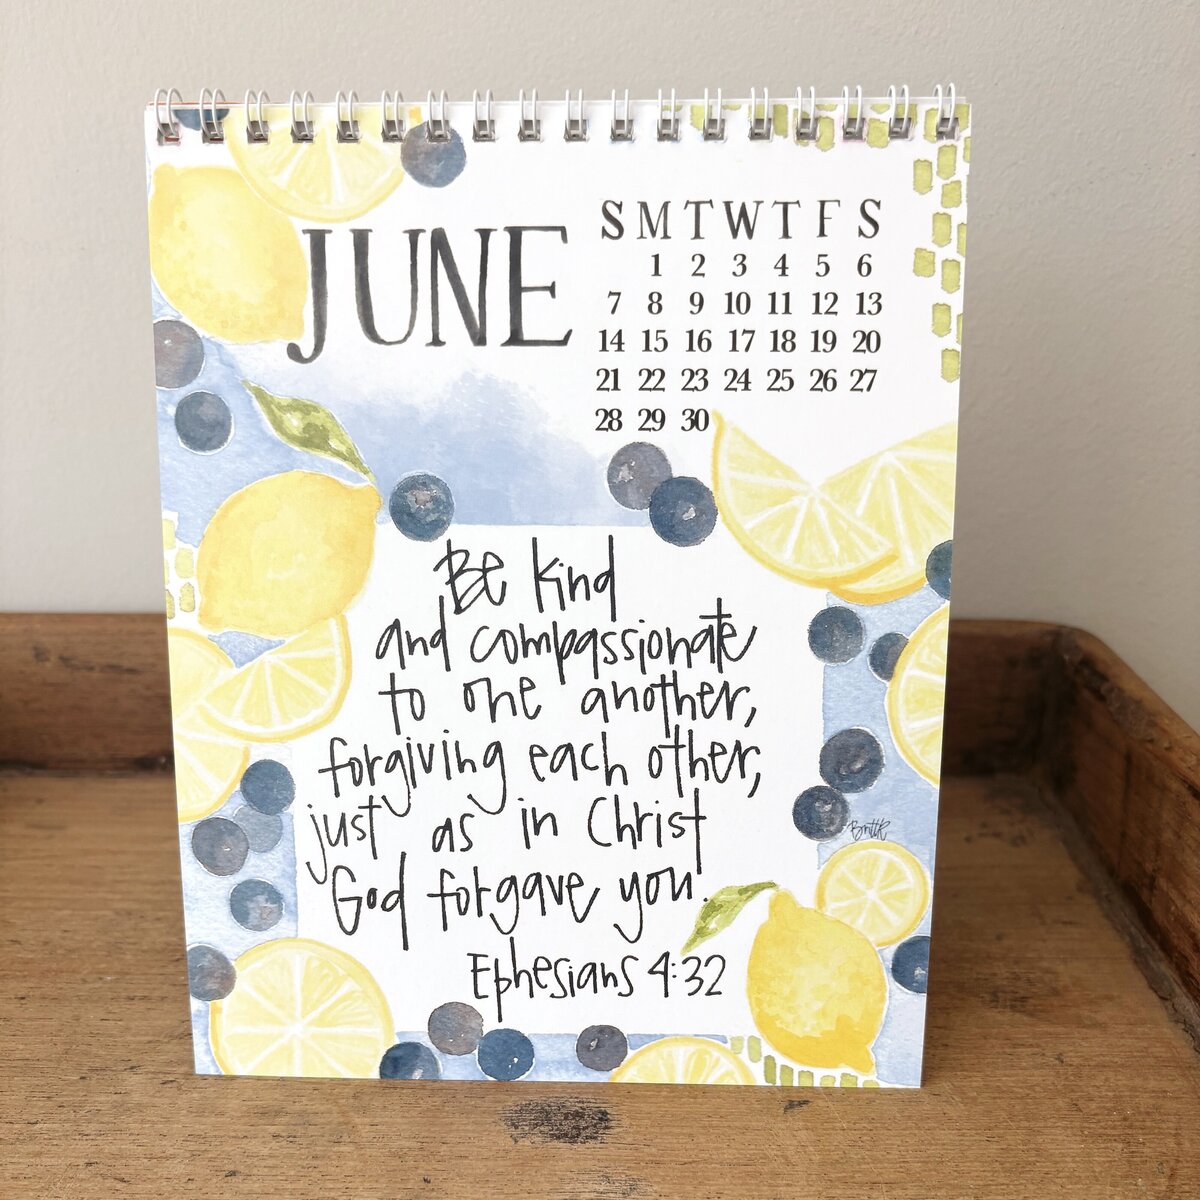 JUNE
S M T W T F S
1 2 3 4 5 6
7 8 9 10 11 12 13
14 15 16 17 18 19 20
21 22 23 24 25 26 27
28 29 30
Be kind
and compassionate
to one another,
forgiving each other,
just as in Christ
God forgave you.
Ephesians 4:32